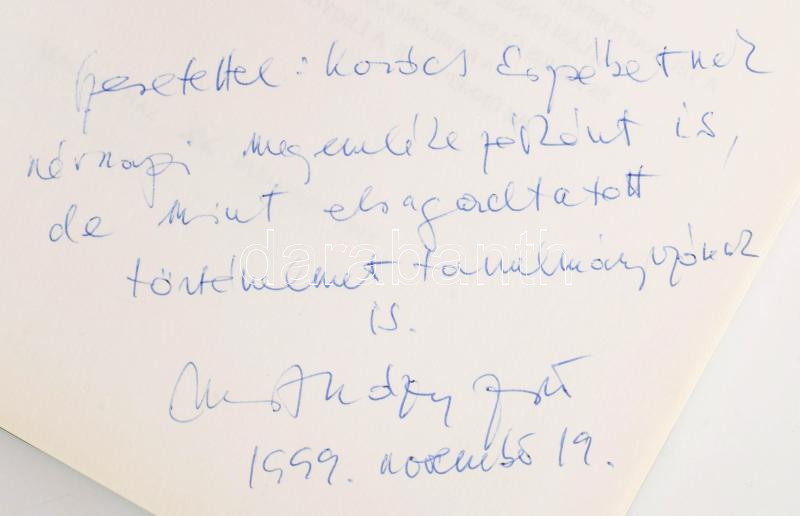 szeretettel: Kovács Erzsébetnek
névnapi megemlékezésként is,
de mint elragadtatott
történelmet tanulmányozónak
is.
1999. november 19.
darabanth